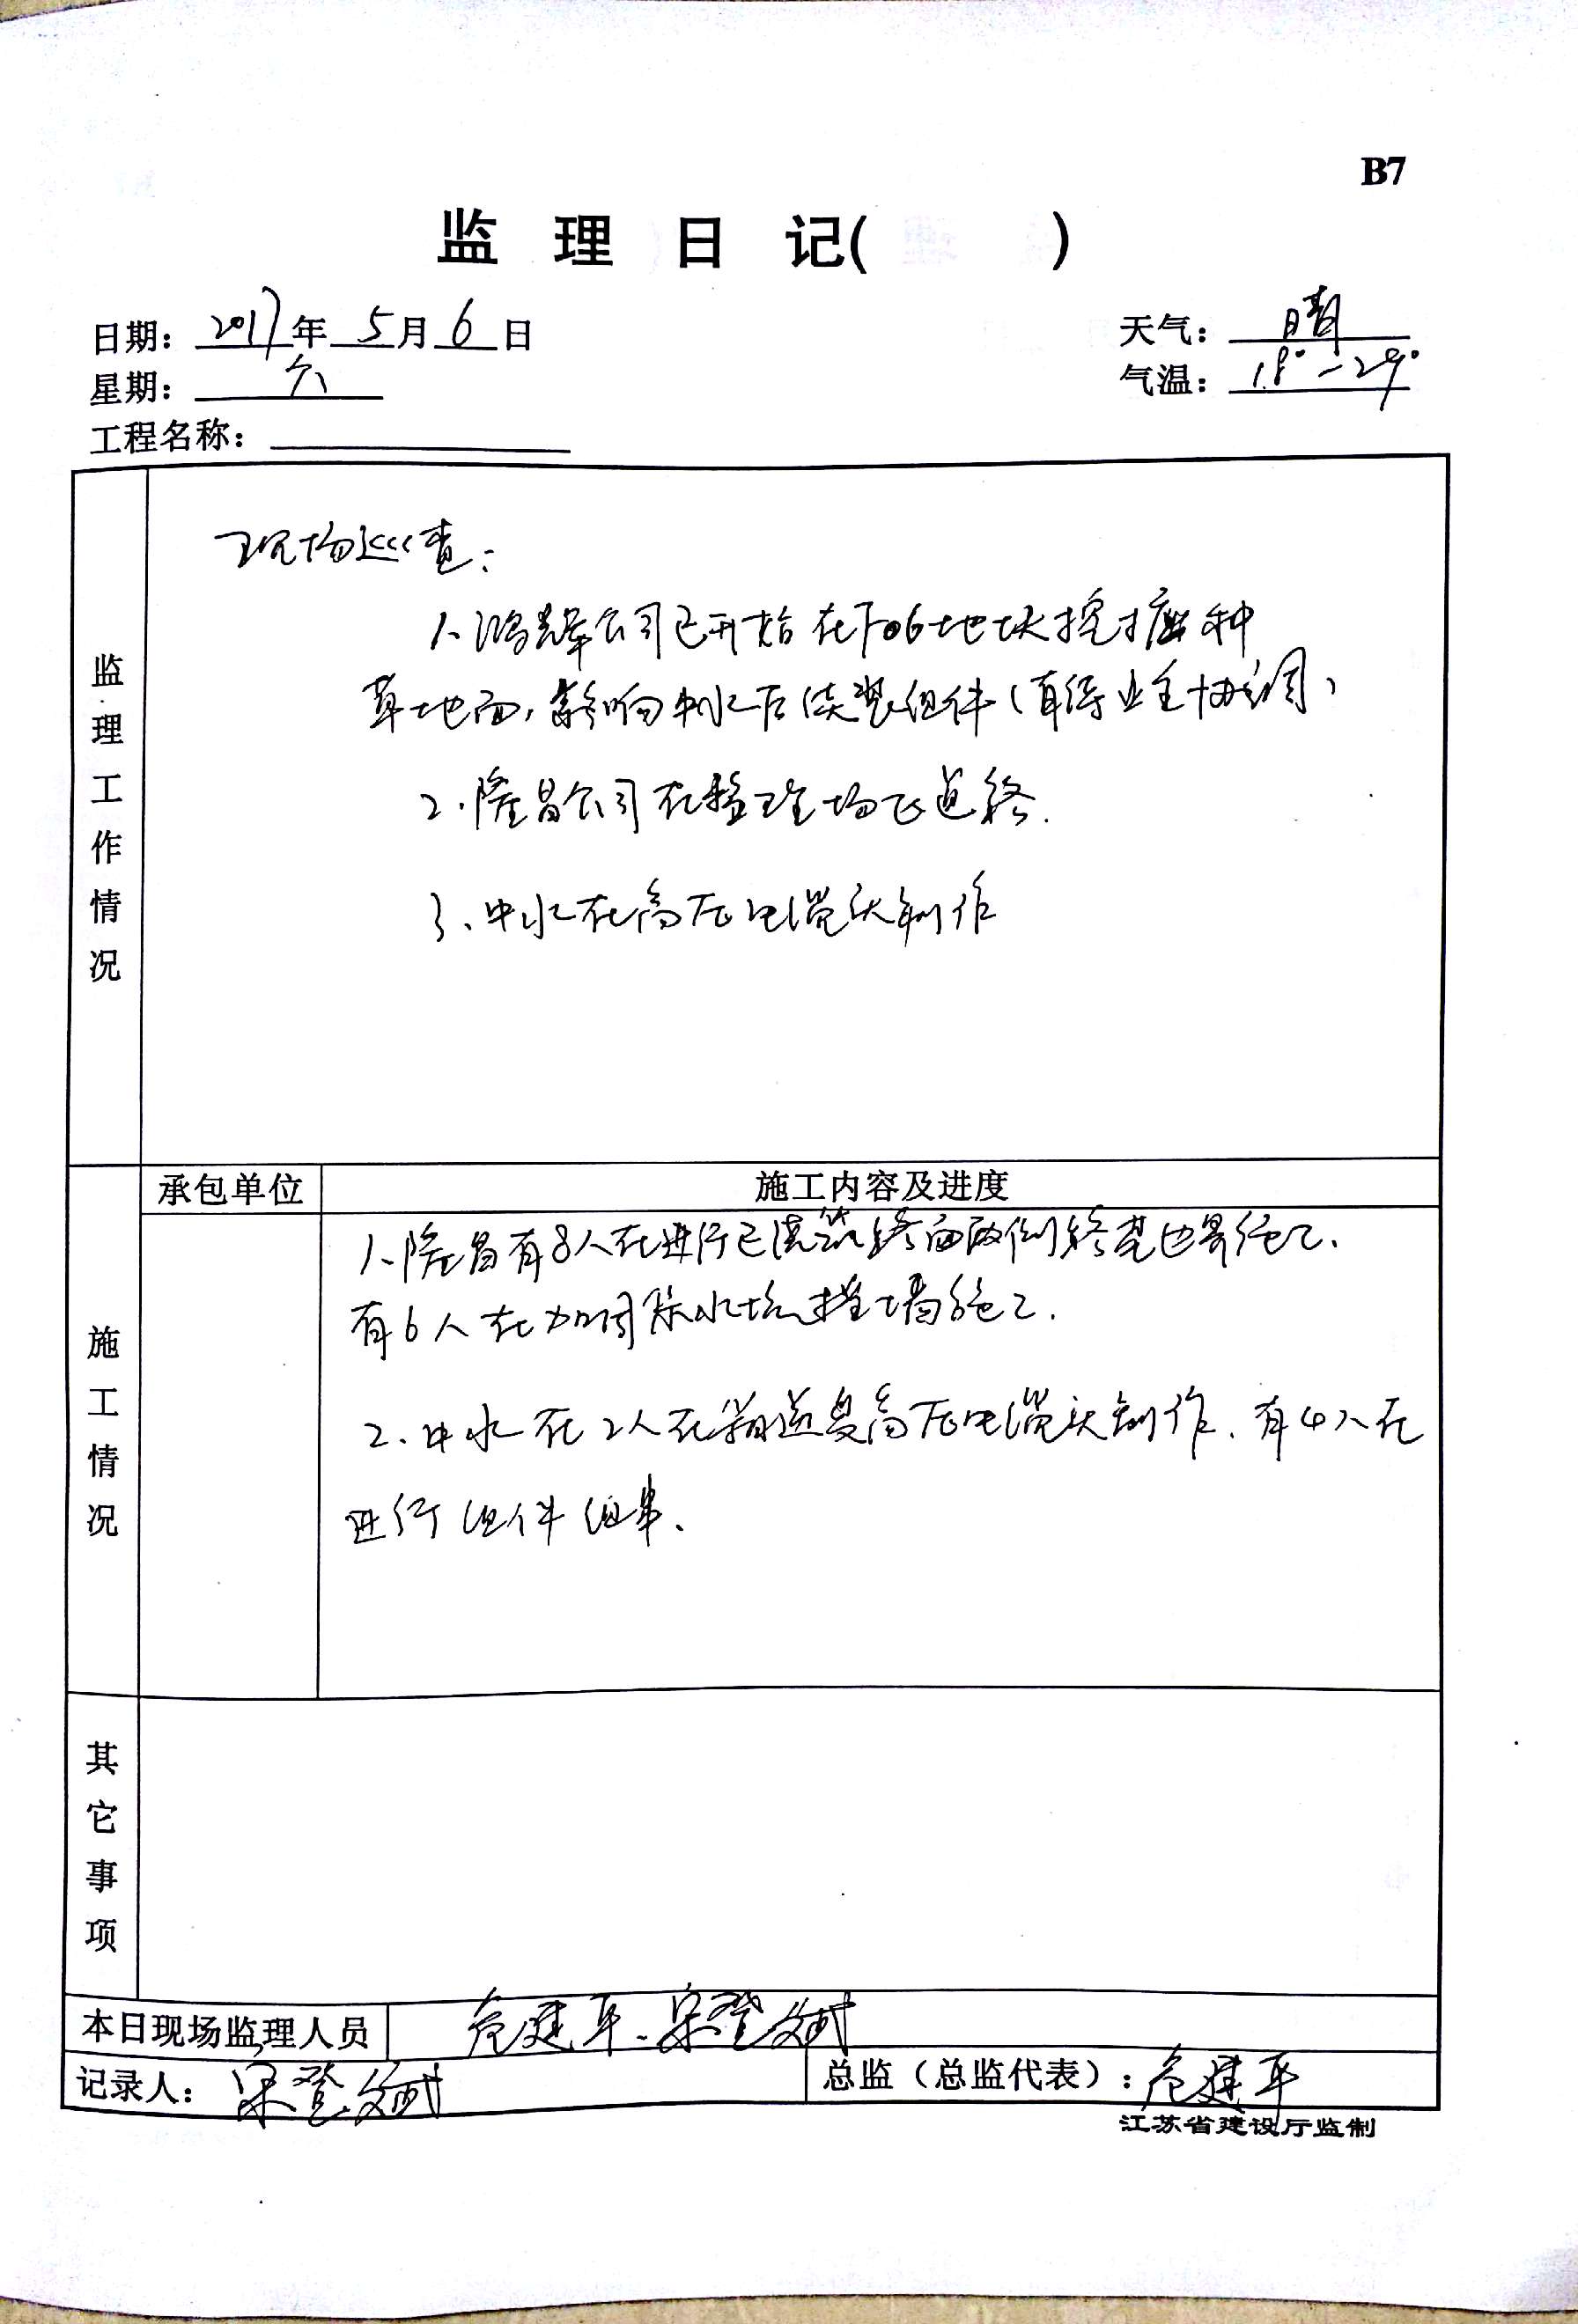 B7
监 理 日 记( )
日期: 2017年 5月 6日
天气: 晴
星期: 六
气温: 18°-29°
工程名称:
监理工作情况
现场巡查:
1、鸿辉公司已开始在F06地块挖 种
草地面,影响中水后续装组件(直得业主协调)
2、隆昌公司在整理场区道路.
3、中水在高压电缆头制作
承包单位
施工内容及进度
施工情况
1、隆昌有8人在进行已浇筑路面两侧路 施工.
有6人在加 水坑挡墙施工.
2、中水在2人在箱逆变高压电缆头制作.有4人在
进行组件组串.
其它事项
本日现场监理人员
危建平、宋登
记录人: 宋登
总监(总监代表): 危建平
江苏省建设厅监制